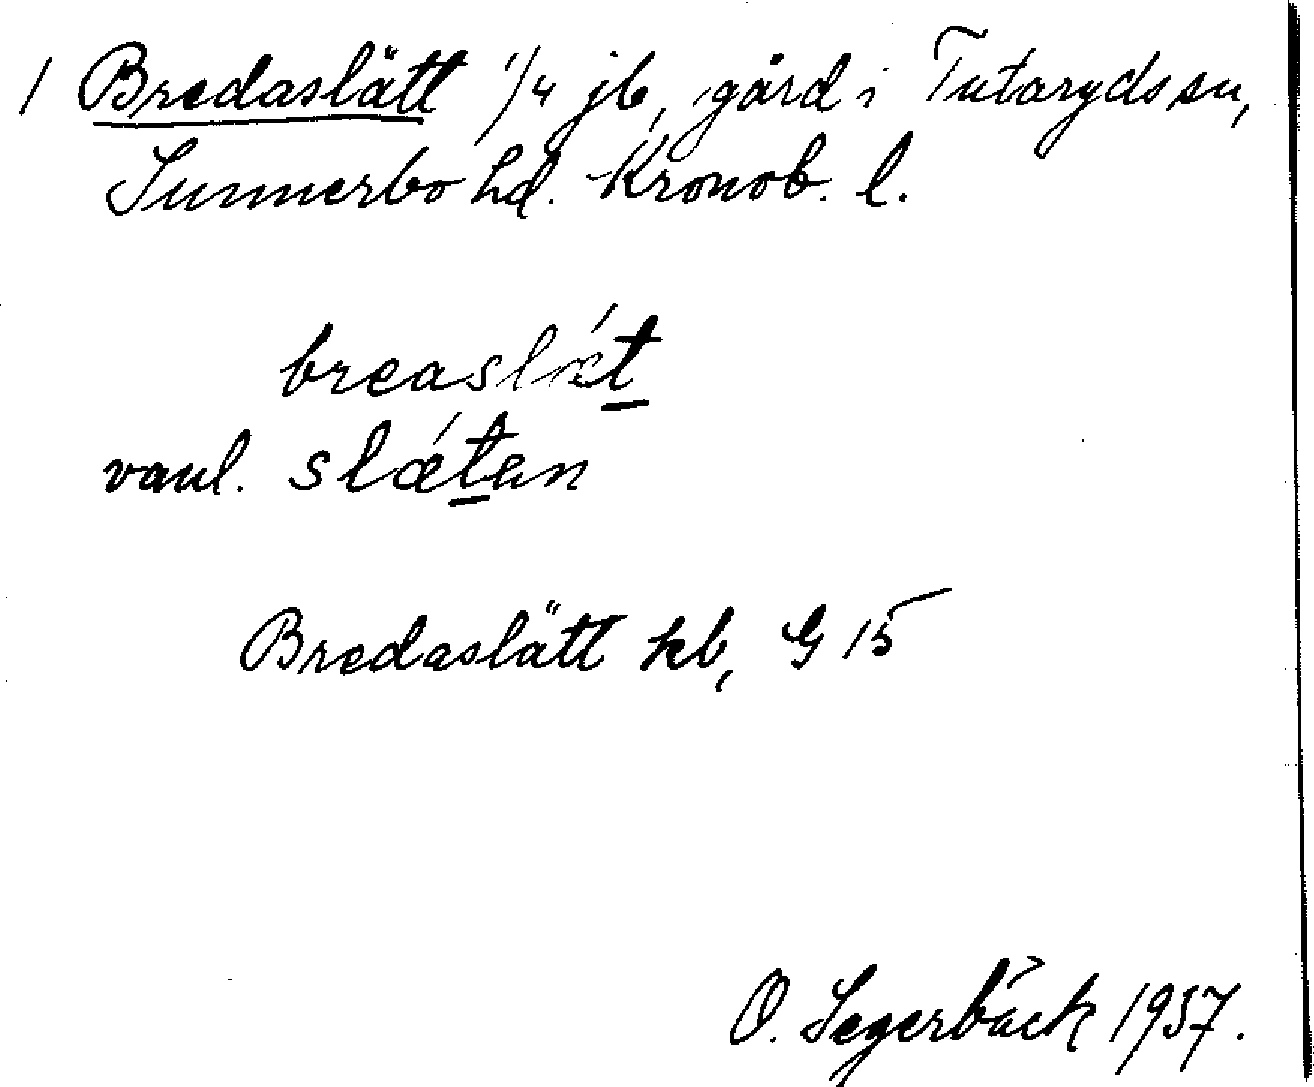 1 Bredaslätt 1/4 jb, gård i Tutaryds sn,
Sunnerbo hd. Kronob. l.
breaslǽt̲
vanl. slǽt̲en
Bredaslätt kb, G 15
O. Segerbäck 1957.